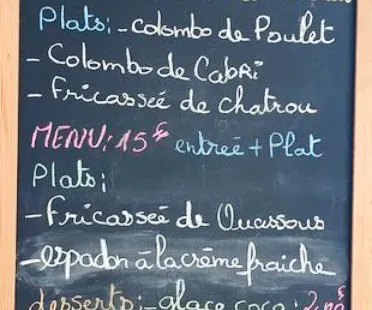 Plats: - Colombo de Poulet
- Colombo de Cabri
- Fricasseé de chatrou
MENU: 15€ entreé + Plat
Plats:
- Fricasseé de Ouassous
- espadon à la crème fraiche
desserts: - glace coco: 2,00€